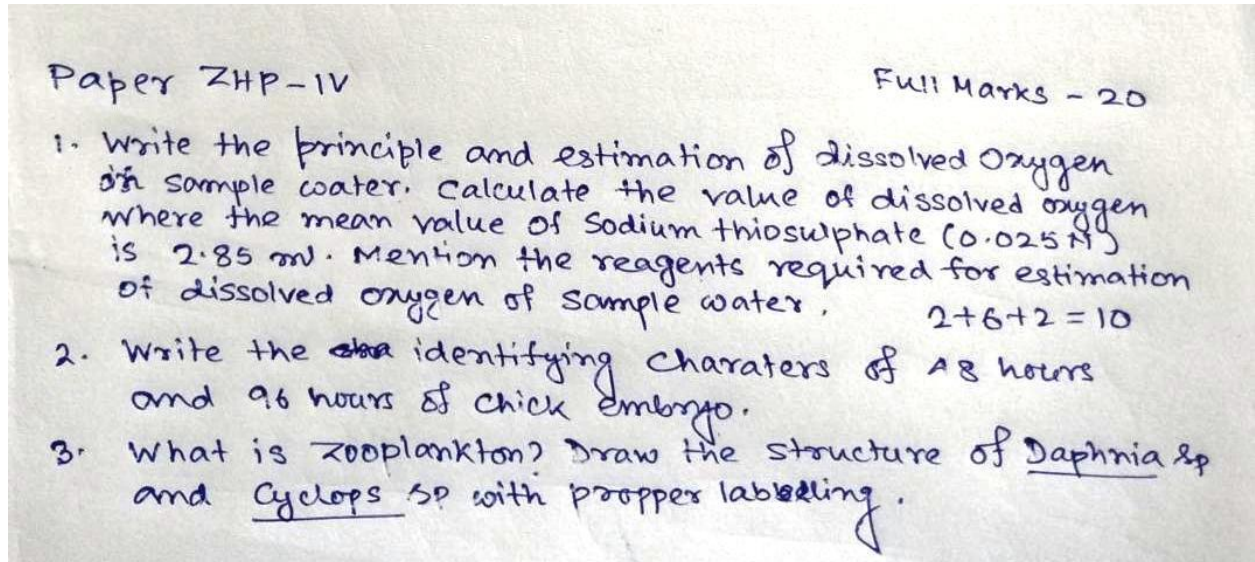 Paper ZHP-IV Full Marks - 20
1. Write the principle and estimation of dissolved Oxygen
in sample water. Calculate the value of dissolved oxygen
where the mean value of Sodium thiosulphate (0.025 N)
is 2.85 ml. Mention the reagents required for estimation
of dissolved oxygen of sample water. 2+6+2=10
2. Write the identifying Charaters of 48 hours
and 96 hours of chick embryo.
3. What is zooplankton? Draw the structure of Daphnia sp
and Cyclops sp with propper labelling.